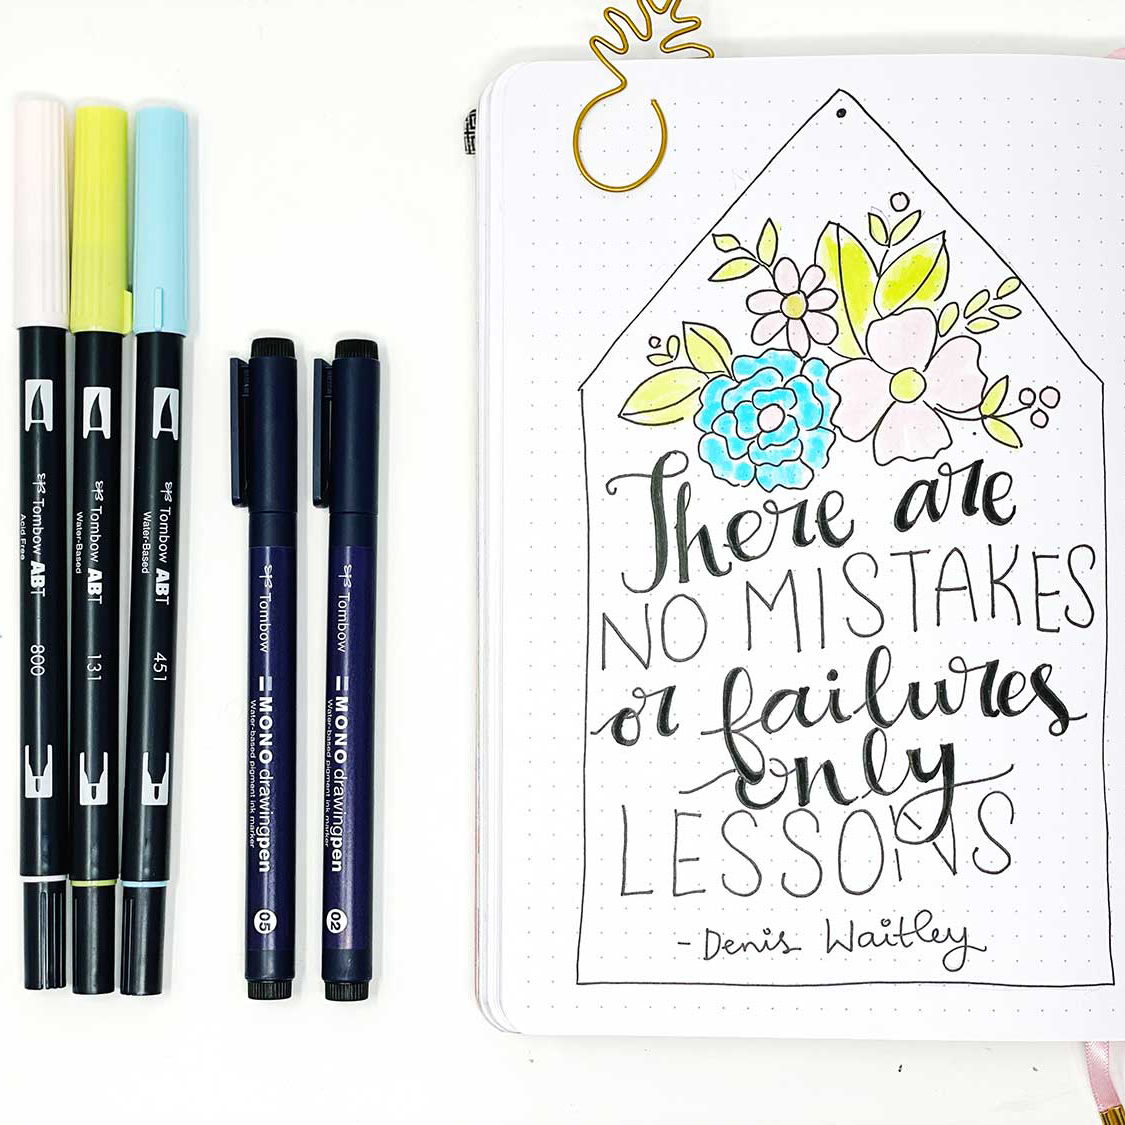 Tombow ABT
Acid Free
800
Tombow ABT
Water-Based
131
Tombow ABT
Water-Based
451
Tombow
MONO drawing pen
Water-based pigment ink marker
05
Tombow
MONO drawing pen
Water-based pigment ink marker
02
There are
NO MISTAKES
or failures
only
LESSONS
- Denis Waitley